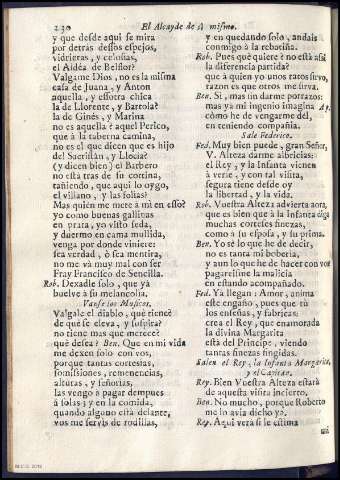 230 El Alcayde de sì mismo.
y que desde aqui se mira
por detràs dessos espejos,
vidrieras, y celosias,
el Aldèa de Belflor?
Valgame Dios, no es la misma
casa de Juana, y Anton
aquella, y essotra chica
la de Llorente, y Bartola?
la de Ginès, y Marina
no es aquella? aquel Perico,
que à la taberna camina,
no es el que dicen que es hijo
del Sacristàn, y Llocia?
(y dicen bien) el Barbero
no està tras de su cortina,
tañiendo, que aqui lo oygo,
el villano, y las folias?
Mas quièn me mete à mi en esso?
yo como buenas gallinas
en prata, yo visto seda,
y duermo en cama mullida,
venga por donde viniere:
sea verdad, ò sea mentira,
no me và muy mal con ser
Fray Francisco de Sencilla.
Rob. Dexadle solo, que yà
buelve à su melancolia.
Vanse los Musicos.
Valgale el diablo, què tiene?
de què se eleva, y suspira?
no tiene mas que merece?
què desea? Ben. Que en mi vida
me dexen solo con vos,
porque tantas cortesias,
somissiones, remenencias,
alturas, y señorias,
las vengo à pagar dempues
à solas; y en la comida,
quando alguno està delante,
vos me servis de rodillas,
y en quedando solo, andais
conmigo à la rebatiña.
Rob. Pues què quiere? no està assi
la diferencia partida?
que à quien yo unos ratos sirvo,
razon es que otros me sirva.
Ben. Sì, mas sin darme porrazos:
mas yà mi ingenio imagina
còmo he de vengarme del,
en teniendo compañia.
Sale Federico.
Fed. Muy bien puede, gran Señor,
V. Alteza darme albricias:
el Rey, y la Infanta vienen
à verte, y con tal visita,
segura tiene desde oy
la libertad, y la vida.
Rob. Vuestra Alteza advierta aora,
que es bien que à la Infanta diga
muchas corteses finezas,
como à su esposa, y su prima.
Ben. Yo sè lo que he de decir,
no es tanta mi boberia,
y aun lo que he de hacer con vos
pagareisme la malicia
en estando acompañado.
Fed. Yà llegan: Amor, anima
este engaño, pues que tù
los enseñas, y fabricas:
crea el Rey, que enamorada
la divina Margarita
està del Principe, viendo
tantas finezas fingidas.
Salen el Rey, la Infanta Margarita,
y el Capitan.
Rey. Bien Vuestra Alteza estarà
de aquesta visita incierto.
Ben. No mucho, porque Roberto
me lo avia dicho yà.
Rey. Aqui verà si le estima